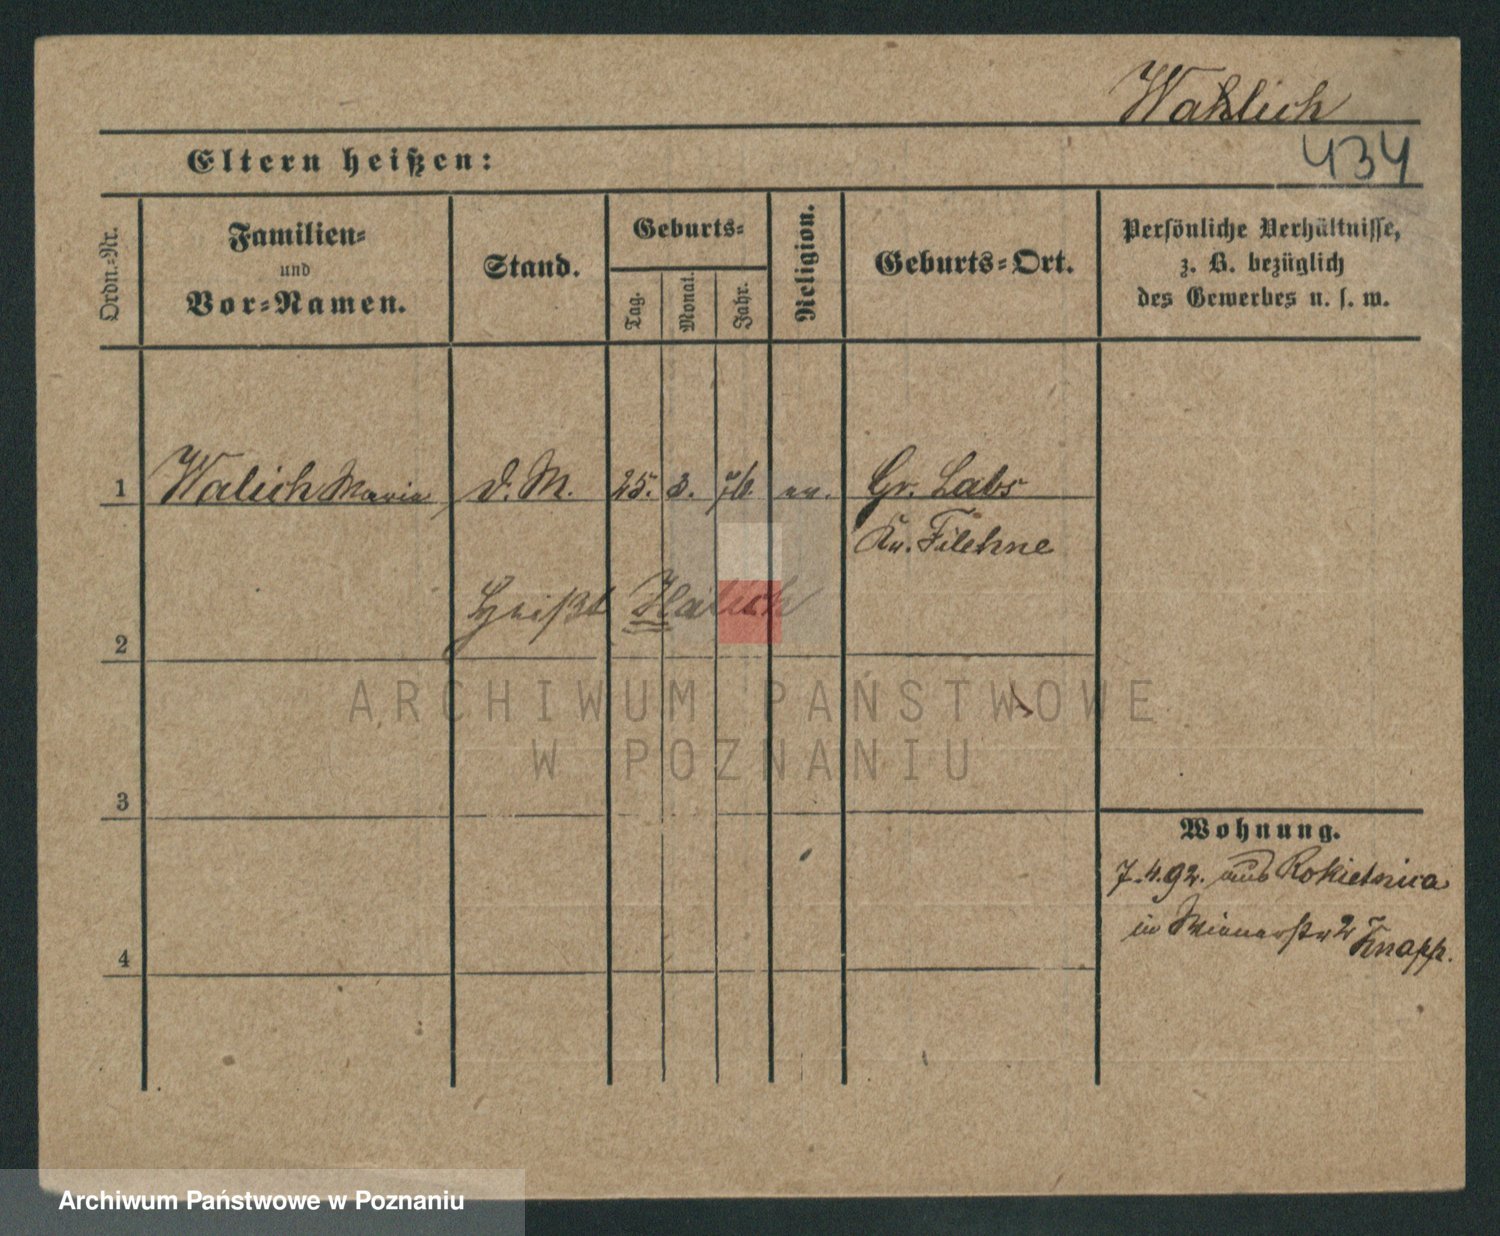 Wahlich
434
Eltern heißen:
Ordn.-Nr.
Familien-
und
Vor-Namen.
Stand.
Geburts-
Tag.
Monat.
Jahr.
Religion.
Geburts-Ort.
Persönliche Verhältnisse,
z. B. bezüglich
des Gewerbes u. s. w.
1 Walich Maria D. M. 25. 3. ev. Gr. Labs
Kr. Filehne
heißt Halich
2
ARCHIWUM PAŃSTWOWE
W POZNANIU
3
Wohnung.
7.4.92. aus Rokietnica
in Wienerstr 2 Knapp.
4
Archiwum Państwowe w Poznaniu